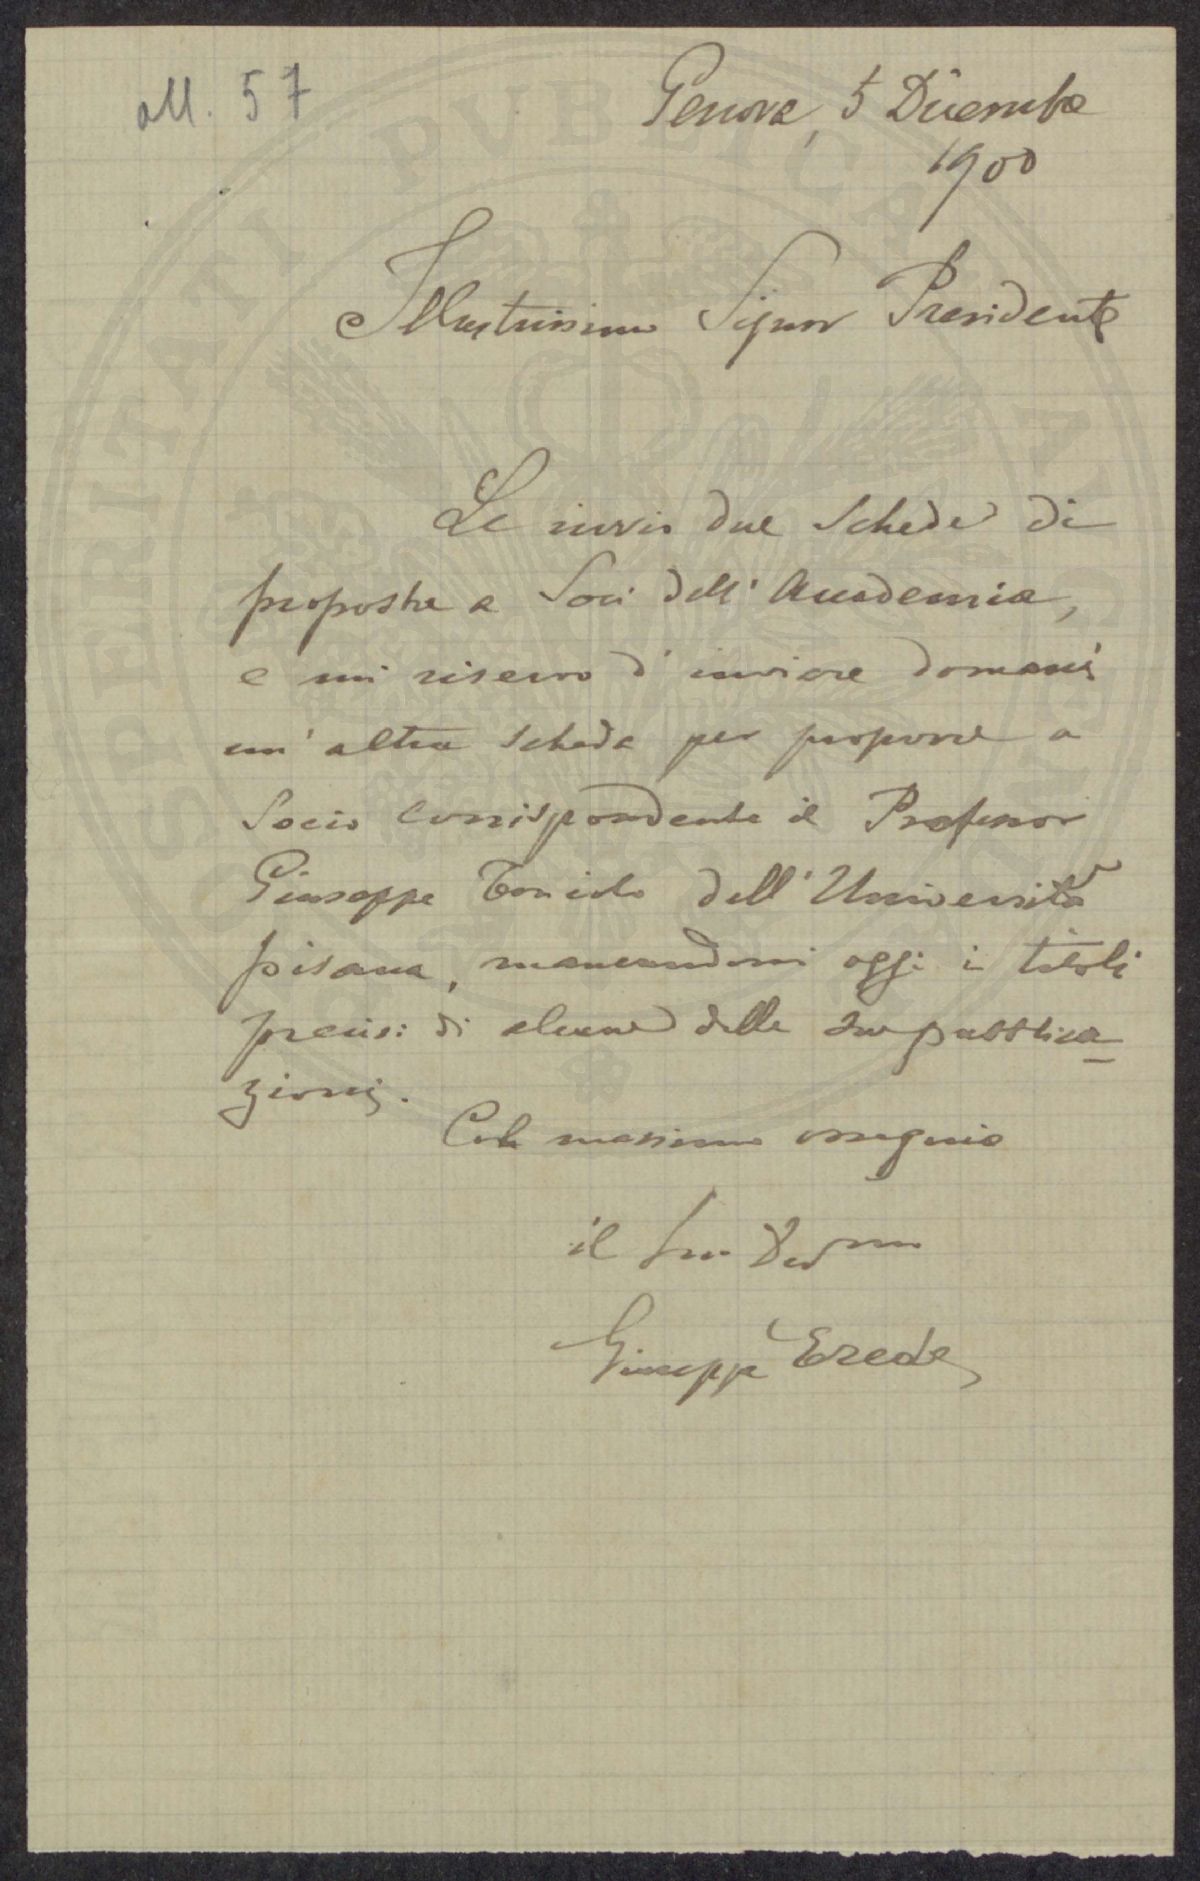 all. 57
Genova, 5 Dicembre
1900
Illustrissimo Signor Presidente
Le invio due schede di
proposte a Soci dell'Accademia,
e mi riservo d'inviare domani
un'altra scheda per proporre a
Socio corrispondente il Professor
Giuseppe Toniolo dell'Università
pisana, mancandomi oggi i titoli
precisi di alcune delle sue pubblica-
zioni.
Col massimo ossequio
il Suo Devmo
Giuseppe Erede
PROSPERITATI PUBLICAE AUGENDAE